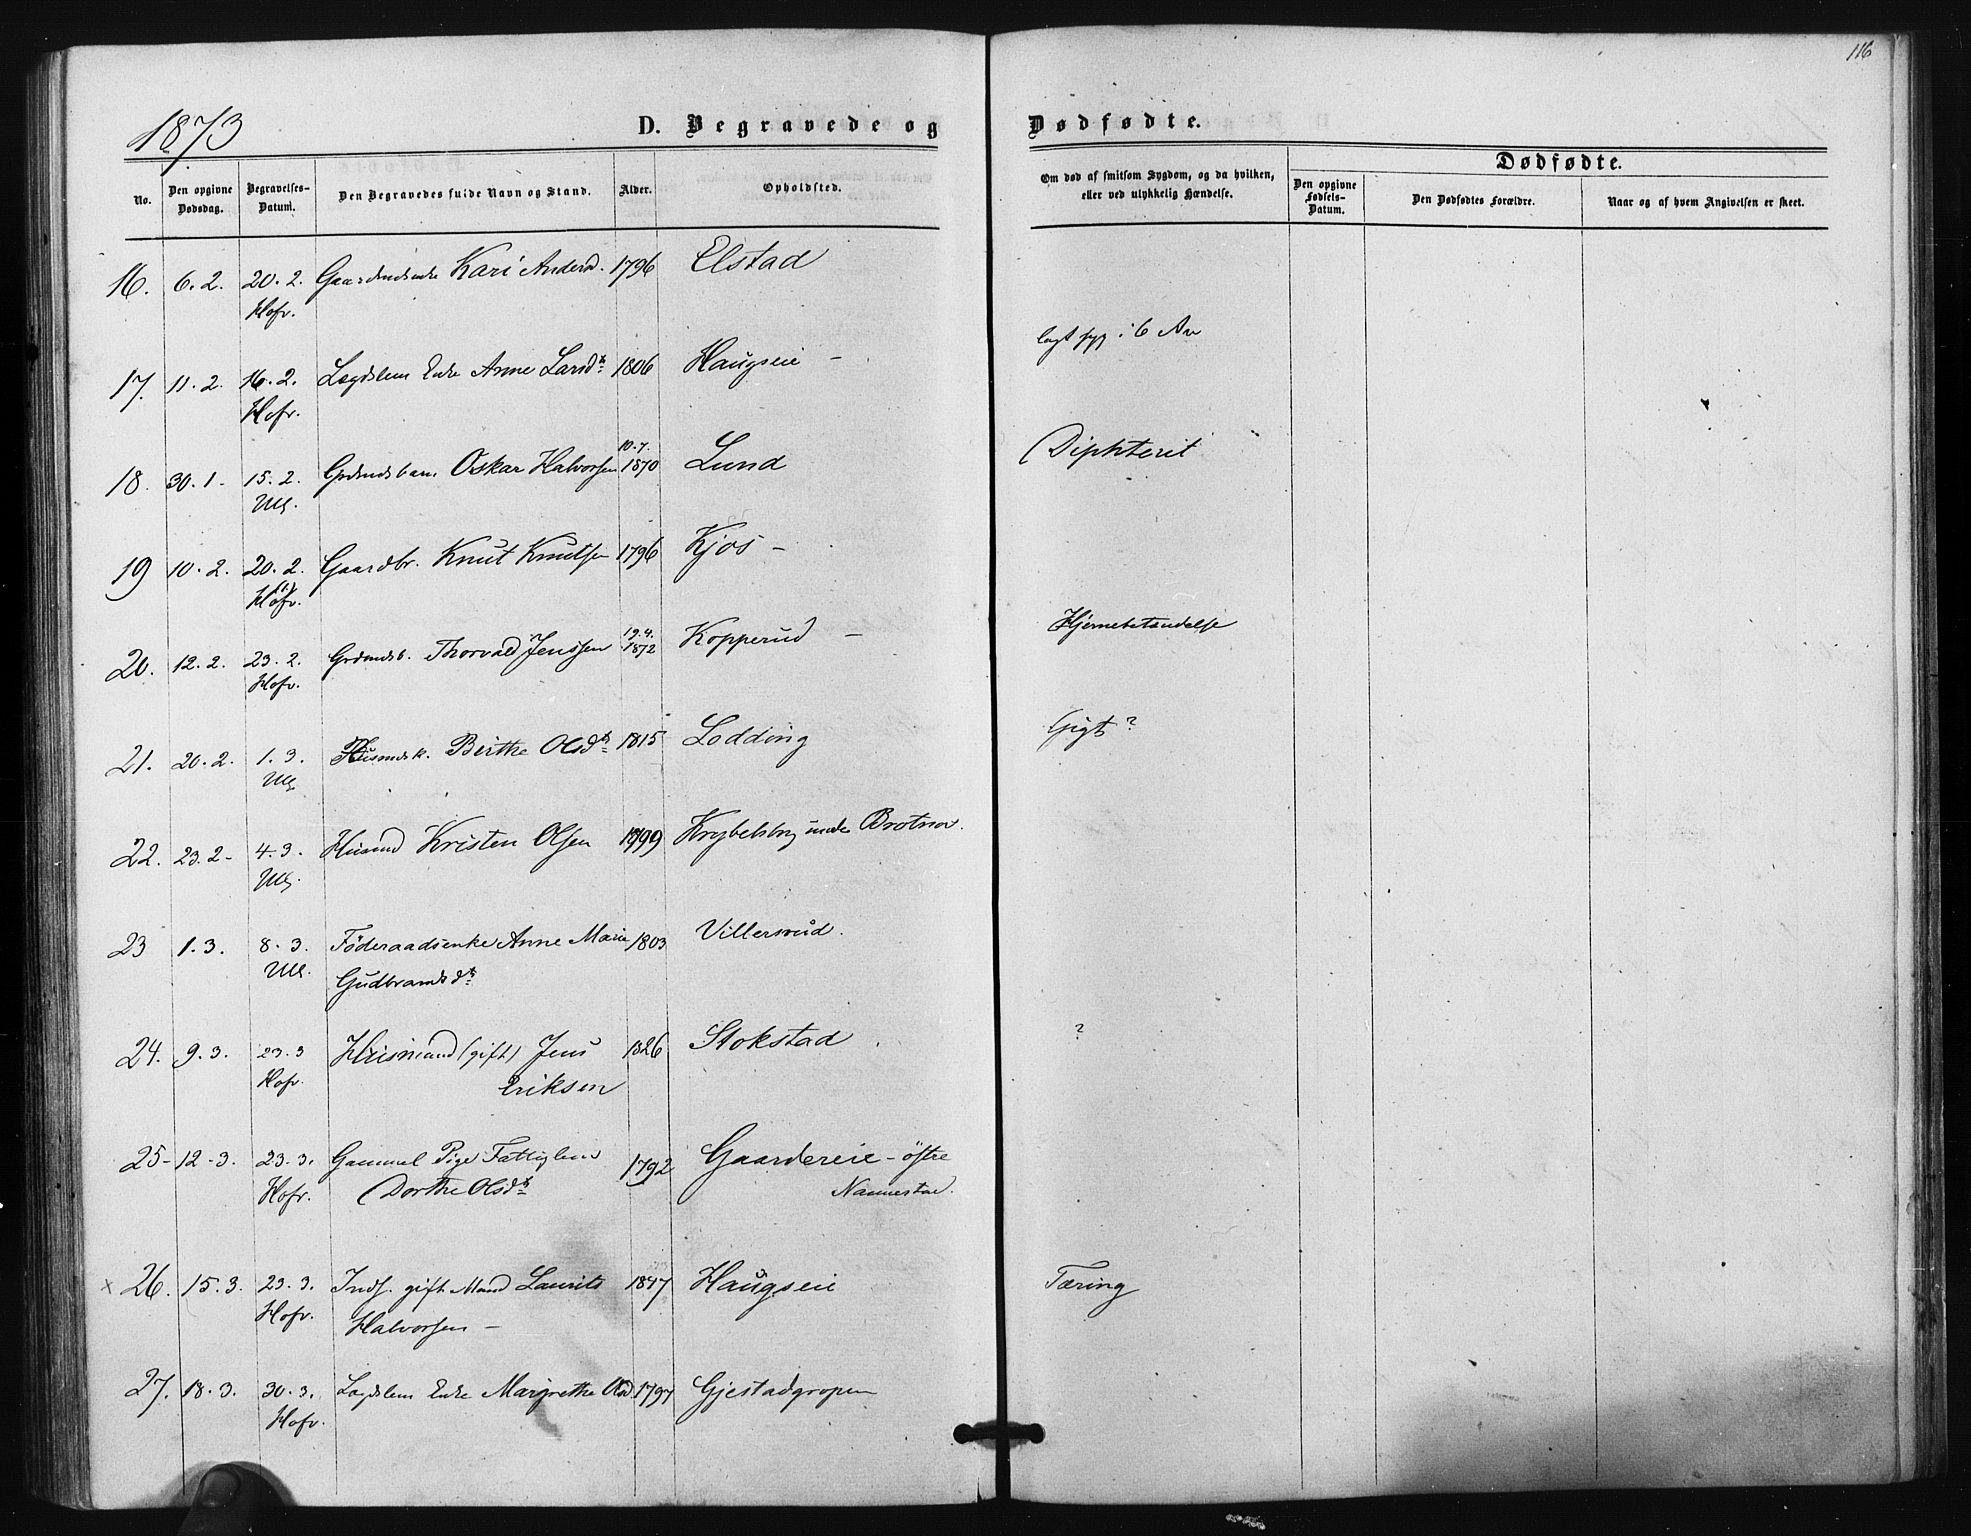 116
1873
D. Begravede og Dødfødte.
No.
Den opgivne Dødsdag.
Begravelses-Datum.
Den Begravedes fulde Navn og Stand.
Alder.
Opholdsted.
Om død af smitsom Sygdom, og da hvilken, eller ved ulykkelig Hændelse.
Dødfødte.
Den opgivne Fødsels-Datum.
Den Dødfødtes Forældre.
Naar og af hvem Angivelsen er skeet.
16. 6.2. 20.2. Kari Andersd. 1796 Elstad
Hofr.
17. 11.2. 16.2. Lægdslem Enke Anne Larsdtr 1806 Haugseie – lagt syg i 6 Aar
Hofr.
10.7.
18. 30.1. 15.2. Grdmdsbarn Oskar Halvorsen 1870 Lund Diphterit
Ull.
19 10.2. 20.2. Gaardbr. Knut Knutsen 1796 Kjos –
Hofr.
19.4.
20. 12.2. 23.2. Grdmdsb. Thorvald Jenssen 1872 Kopperud – Hjernebetændelse
Hofr.
21. 20.2. 1.3. Husmdsk. Berthe Olsdtr 1815 Lodding Gigt?
Ull.
22. 23.2 4.3. Husmd Kristen Olsen 1799 Krybelsby under Brotnov.
Ull.
23 1.3. 8.3. Föderaadsenke Anne Marie 1803 Villerud.
Ull. Gudbrandsdtr
24. 9.3. 23.3 Husmand (gift) Jens 1826 Stokstad ?
Hofr. Eriksen
25 12.3. 23.3. Gammel Pige Fattiglem 1792 Gaardereie – östre
Hofr. Dorthe Olsdtr Nannestad.
x 26. 15.3. 23.3. Inds. gift Mand Laurits 1847 Haugseie Tæring
Hofr. Halvorsen –
27. 18.3. 30.3. Lægdslem Enke Margrethe Olsd 1797 Gjestadgropen
Hofr.